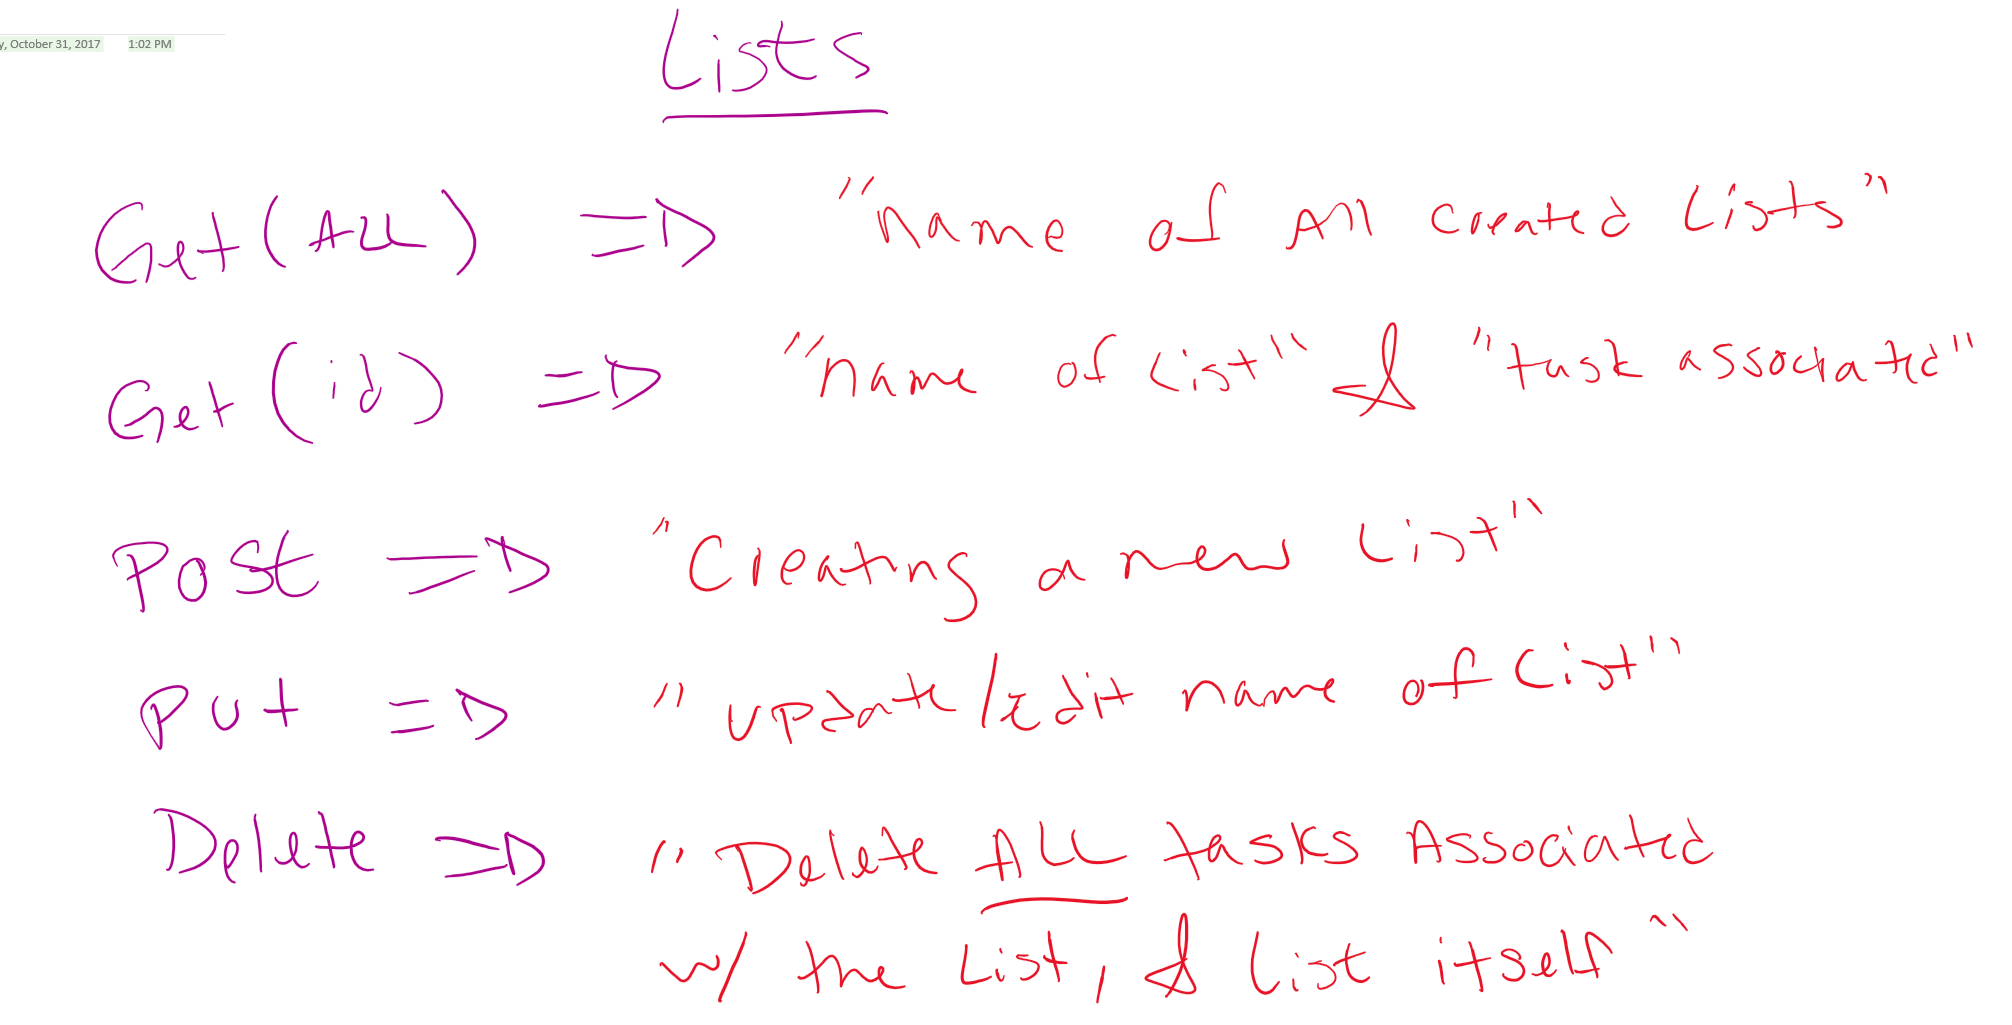 y, October 31, 2017 1:02 PM
Lists
Get(ALL) => "name of All created Lists"
Get(id) => "name of List" & "task associated"
Post => "Creating a new List"
Put => "update/Edit name of List"
Delete => "Delete ALL tasks Associated
w/ the List, & List itself"